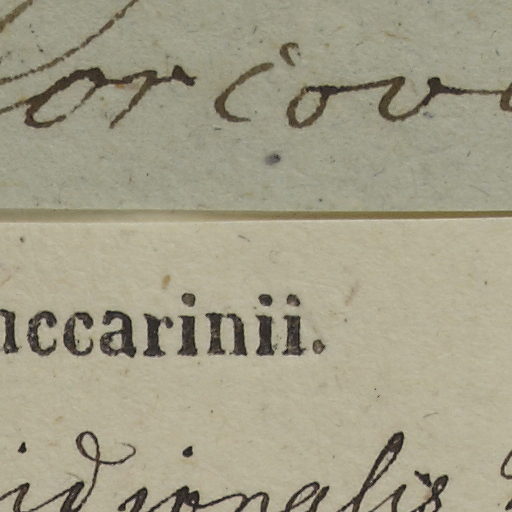 Corcova
uccarinii.
idionalis